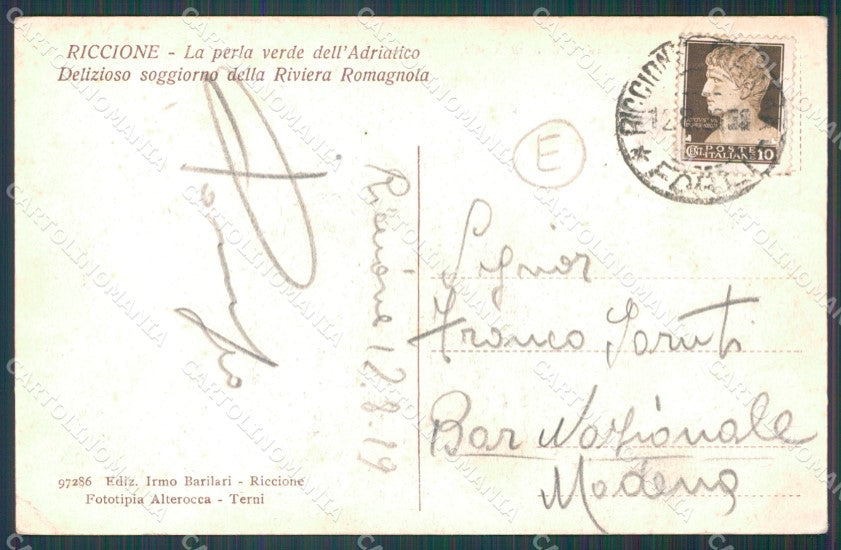 RICCIONE - La perla verde dell'Adriatico
Delizioso soggiorno della Riviera Romagnola
RICCIONE
* FORLI
12 8
POSTE
ITALIANE
CENT. 10
E
Riccione 12.8.19
Signor
Franco
Bar Nazionale
Modena
97286 Ediz. Irmo Barilari - Riccione
Fototipia Alterocca - Terni
CARTOLINOMANIA